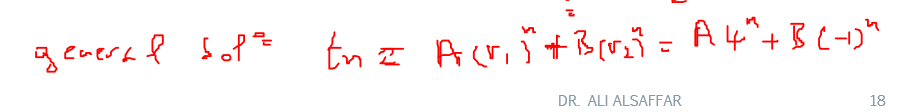 general solⁿ = tn = A(r₁)ⁿ + B(r₂)ⁿ = A 4ⁿ + B (-1)ⁿ
DR. ALI ALSAFFAR 18